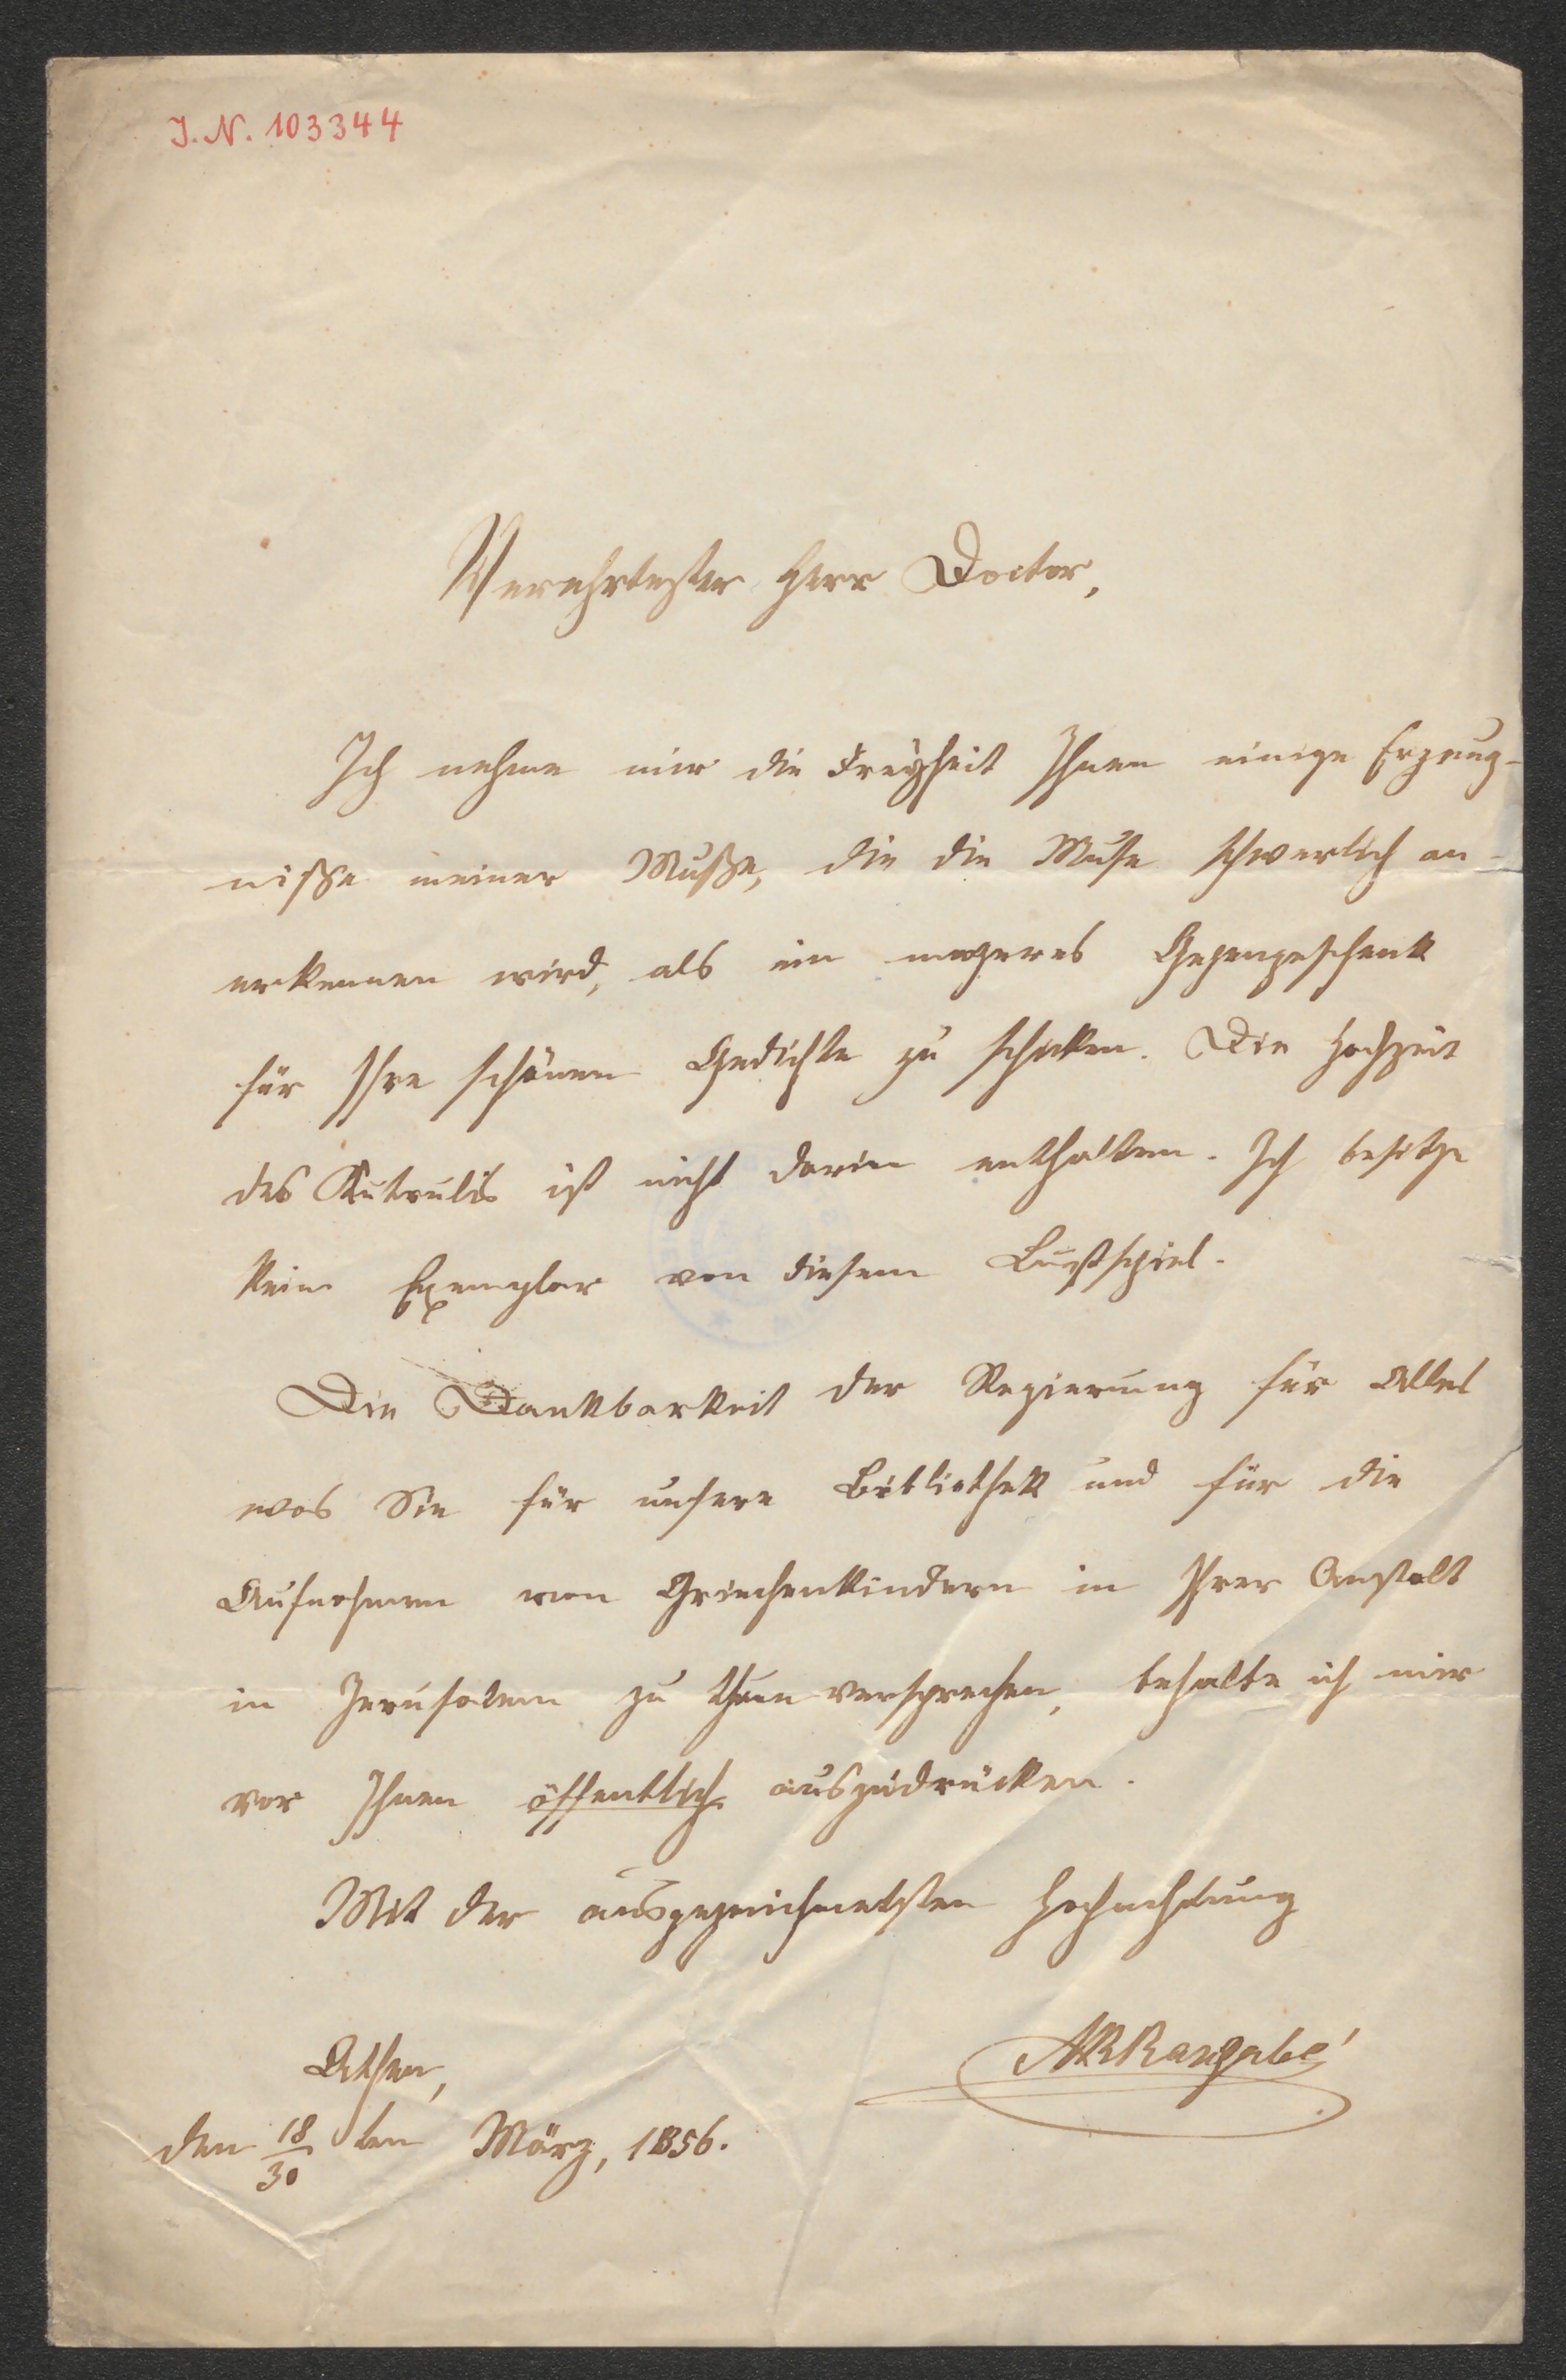 J. N. 103344
Verehrtester Herr Doctor,
Ich nehme mir die Freyheit Ihnen einige Erzeug-
nisse meiner Muße, die die Muse schwerlich an-
erkennen wird, als ein mageres Gegengeschenk
für Ihre schönen Gedichte zu schicken. Die Hochzeit
des Kutrulis ist nicht darin enthalten. Ich besitze
kein Exemplar von diesem Lustspiel.
Die Dankbarkeit der Regierung für Alles
was Sie für unsere Bibliothek und für die
Aufnahme von Griechenkindern in Ihrer Anstalt
in Jerusalem zu thun versprechen, behalte ich mir
vor Ihnen öffentlich auszudrücken.
Mit der ausgezeichnetsten Hochachtung
ARRangabé
Athen,
den 18/30 ten März, 1856.